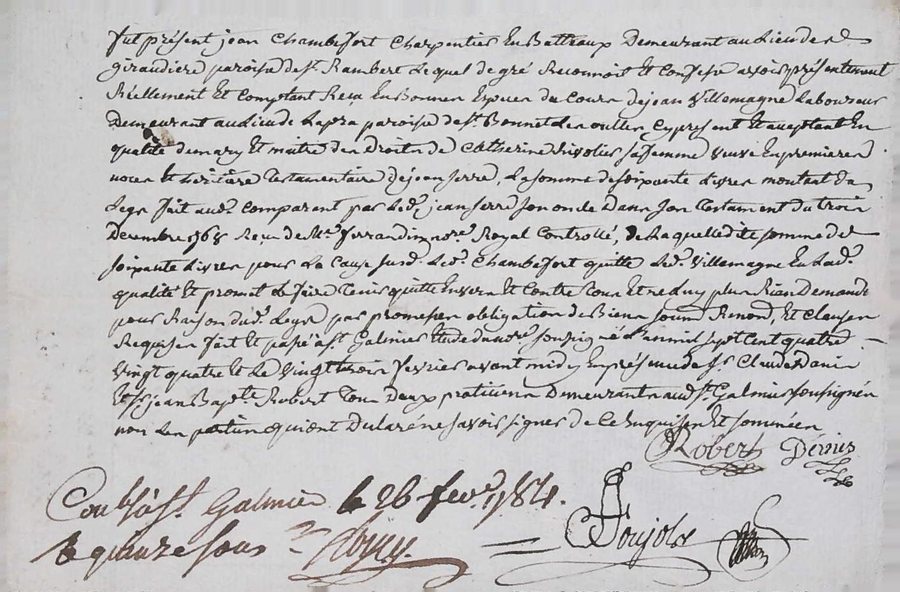 fut présent jean Chambefort Charpentier En Batteaux Demeurant au Lieu de
giraudiere paroisse de st Rambert Lequel de gré Reconnoit Et Confesse avoir présentement
Réellement Et Comptant Reçu En Bonnes Espèces du Cours de jean Villemagne Laboureur
Demeurant au Lieu de Lapra paroisse de st Bonnet Les oulles Cy present Et acceptant En
qualité de mary Et maitre des Droits de Catherine sa femme veuve En premieres
noces Et héritière Testamentaire de jean Serre, La somme de soixante Livres montant du
Legs fait aud. Comparant par Led. jean Serre son oncle Dans son Testament du trois
Décembre 1768 Reçu de Me. Verrandin nore. Royal Controllé, de Laquelle dite somme de
soixante Livres pour La Cause susd. Led. Chambefort quitte Led. Villemagne En Lad.
qualité Et promet Le faire Tenir quitte Envers Et Contre Tous Et ne Luy plus Rien Demander
pour Raison dud. Legs par promesses obligation de Biens soum. Renond. Et Clauses
Requises fait Et passé a st Galmier Etude du nore. soussigné L'an mil sept Cent quatre
vingt quatre Et Le vingt trois fevrier avant midy En présence de sr. Claude Denis
Et sr. jean Bapte. Robert Tous Deux praticiens Demeurants aud. st. Galmier soussignés
non Les parties qui ont Déclaré ne savoir signer de Ce Enquises Et sommées
Robert Dénis
Conllé à st. Galmier le 26 fevr. 1784.
Rs quinze sous
Ponjols